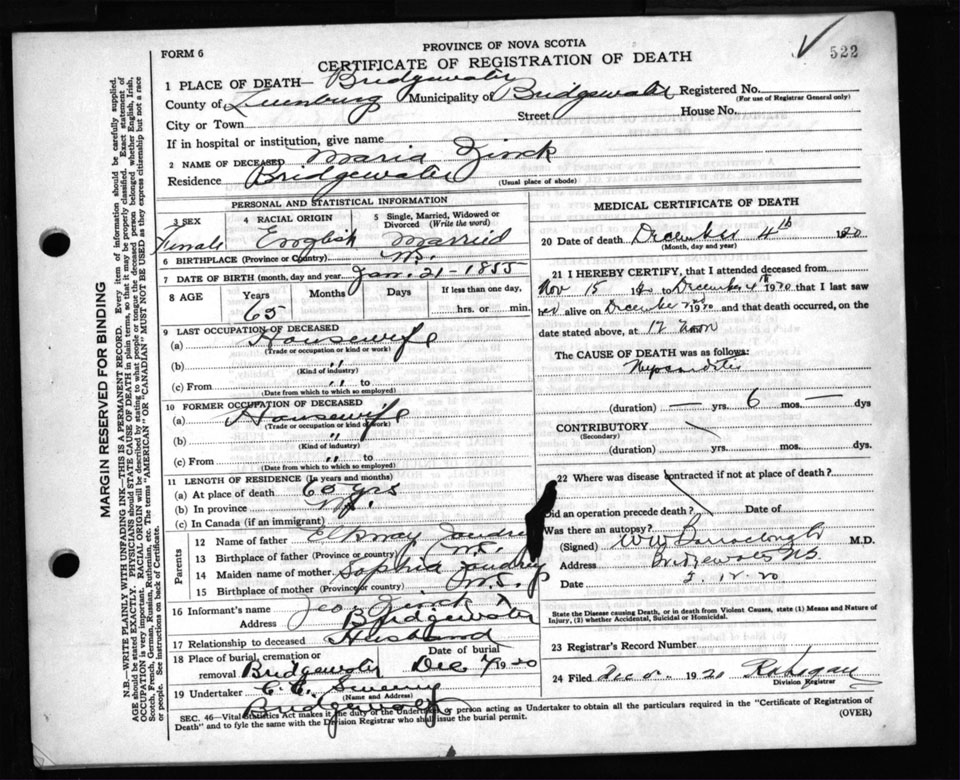 FORM 6
PROVINCE OF NOVA SCOTIA
CERTIFICATE OF REGISTRATION OF DEATH
522
1 PLACE OF DEATH— Bridgewater
County of Lunenburg Municipality of Bridgewater Registered No.
(For use of Registrar General only)
City or Town Street House No.
If in hospital or institution, give name
2 NAME OF DECEASED Maria Zinck
Residence Bridgewater (Usual place of abode)
PERSONAL AND STATISTICAL INFORMATION
3 SEX Female
4 RACIAL ORIGIN English
5 Single, Married, Widowed or Divorced (Write the word) Married
6 BIRTHPLACE (Province or Country) N.S.
7 DATE OF BIRTH (month, day and year) Jan. 21 - 1855
8 AGE Years Months Days If less than one day,
65 hrs. or min.
9 LAST OCCUPATION OF DECEASED
(a) Housewife
(Trade or occupation or kind or work)
(b) "
(Kind of industry)
(c) From " to
(Date from which to which so employed)
10 FORMER OCCUPATION OF DECEASED
(a) Housewife
(Trade or occupation or kind of work)
(b) "
(Kind of industry)
(c) From " to
(Date from which to which so employed)
11 LENGTH OF RESIDENCE (In years and months)
(a) At place of death 65 yrs
(b) In province
(c) In Canada (if an immigrant)
Parents
12 Name of father
13 Birthplace of father (Province or country) N.S.
14 Maiden name of mother Sophia
15 Birthplace of mother (Province or country) N.S.
16 Informant's name Zinck
Address Bridgewater
17 Relationship to deceased Husband
18 Place of burial, cremation or removal Bridgewater
Date of burial Dec 7 1920
19 Undertaker C. E.
(Name and Address)
Bridgewater
MEDICAL CERTIFICATE OF DEATH
20 Date of death December 4th 1920
(Month, day and year)
21 I HEREBY CERTIFY, that I attended deceased from
Nov 15 to December 4th 1920 that I last saw
her alive on December 2nd 1920 and that death occurred, on the
date stated above, at 12 noon
The CAUSE OF DEATH was as follows:
(duration) — yrs. 6 mos. — dys
CONTRIBUTORY
(Secondary)
(duration) yrs. mos. dys.
22 Where was disease contracted if not at place of death?
Did an operation precede death? Date of
Was there an autopsy?
(Signed) M.D.
Address Bridgewater N.S.
Date 5. 12. 20
State the Disease causing Death, or in death from Violent Causes, state (1) Means and Nature of Injury, (2) whether Accidental, Suicidal or Homicidal.
23 Registrar's Record Number
24 Filed Dec 1920
Division Registrar
SEC. 46—Vital Statistics Act makes it the duty of the Undertaker or person acting as Undertaker to obtain all the particulars required in the "Certificate of Registration of
Death" and to fyle the same with the Division Registrar who shall issue the burial permit. (OVER)
MARGIN RESERVED FOR BINDING
N.B.—WRITE PLAINLY WITH UNFADING INK—THIS IS A PERMANENT RECORD. Every item of information should be carefully supplied.
AGE should be stated EXACTLY. PHYSICIANS should STATE CAUSE OF DEATH in plain terms, so that it may be properly classified. Exact statement of
OCCUPATION is very important. RACIAL ORIGIN will be described by stating to what people or tongue the deceased person belonged whether English, Irish,
Scotch, French, German, Russian, Ruthenian, etc. The terms "AMERICAN" OR "CANADIAN" MUST NOT BE USED as they express citizenship but not a race
or people. See instructions on back of Certificate.